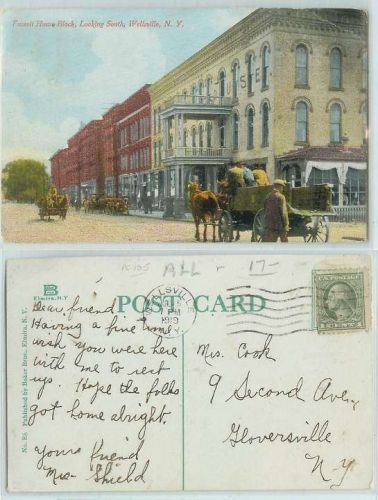 Fassett House Block, Looking South, Wellsville, N. Y.
PC-105 ALL - 17-
B
Elmira, N.Y.
POST CARD
WELLSVILLE
PM
1919
N.Y.
No. E5. Published by Baker Bros., Elmira, N. Y.
Dear friend
Having a fine time
wish you were here
with me to rest
up. Hope the folks
got home alright.
Yours friend
Mrs Shield
Mrs. Cook
9 Second Ave,
Gloversville
N.Y.